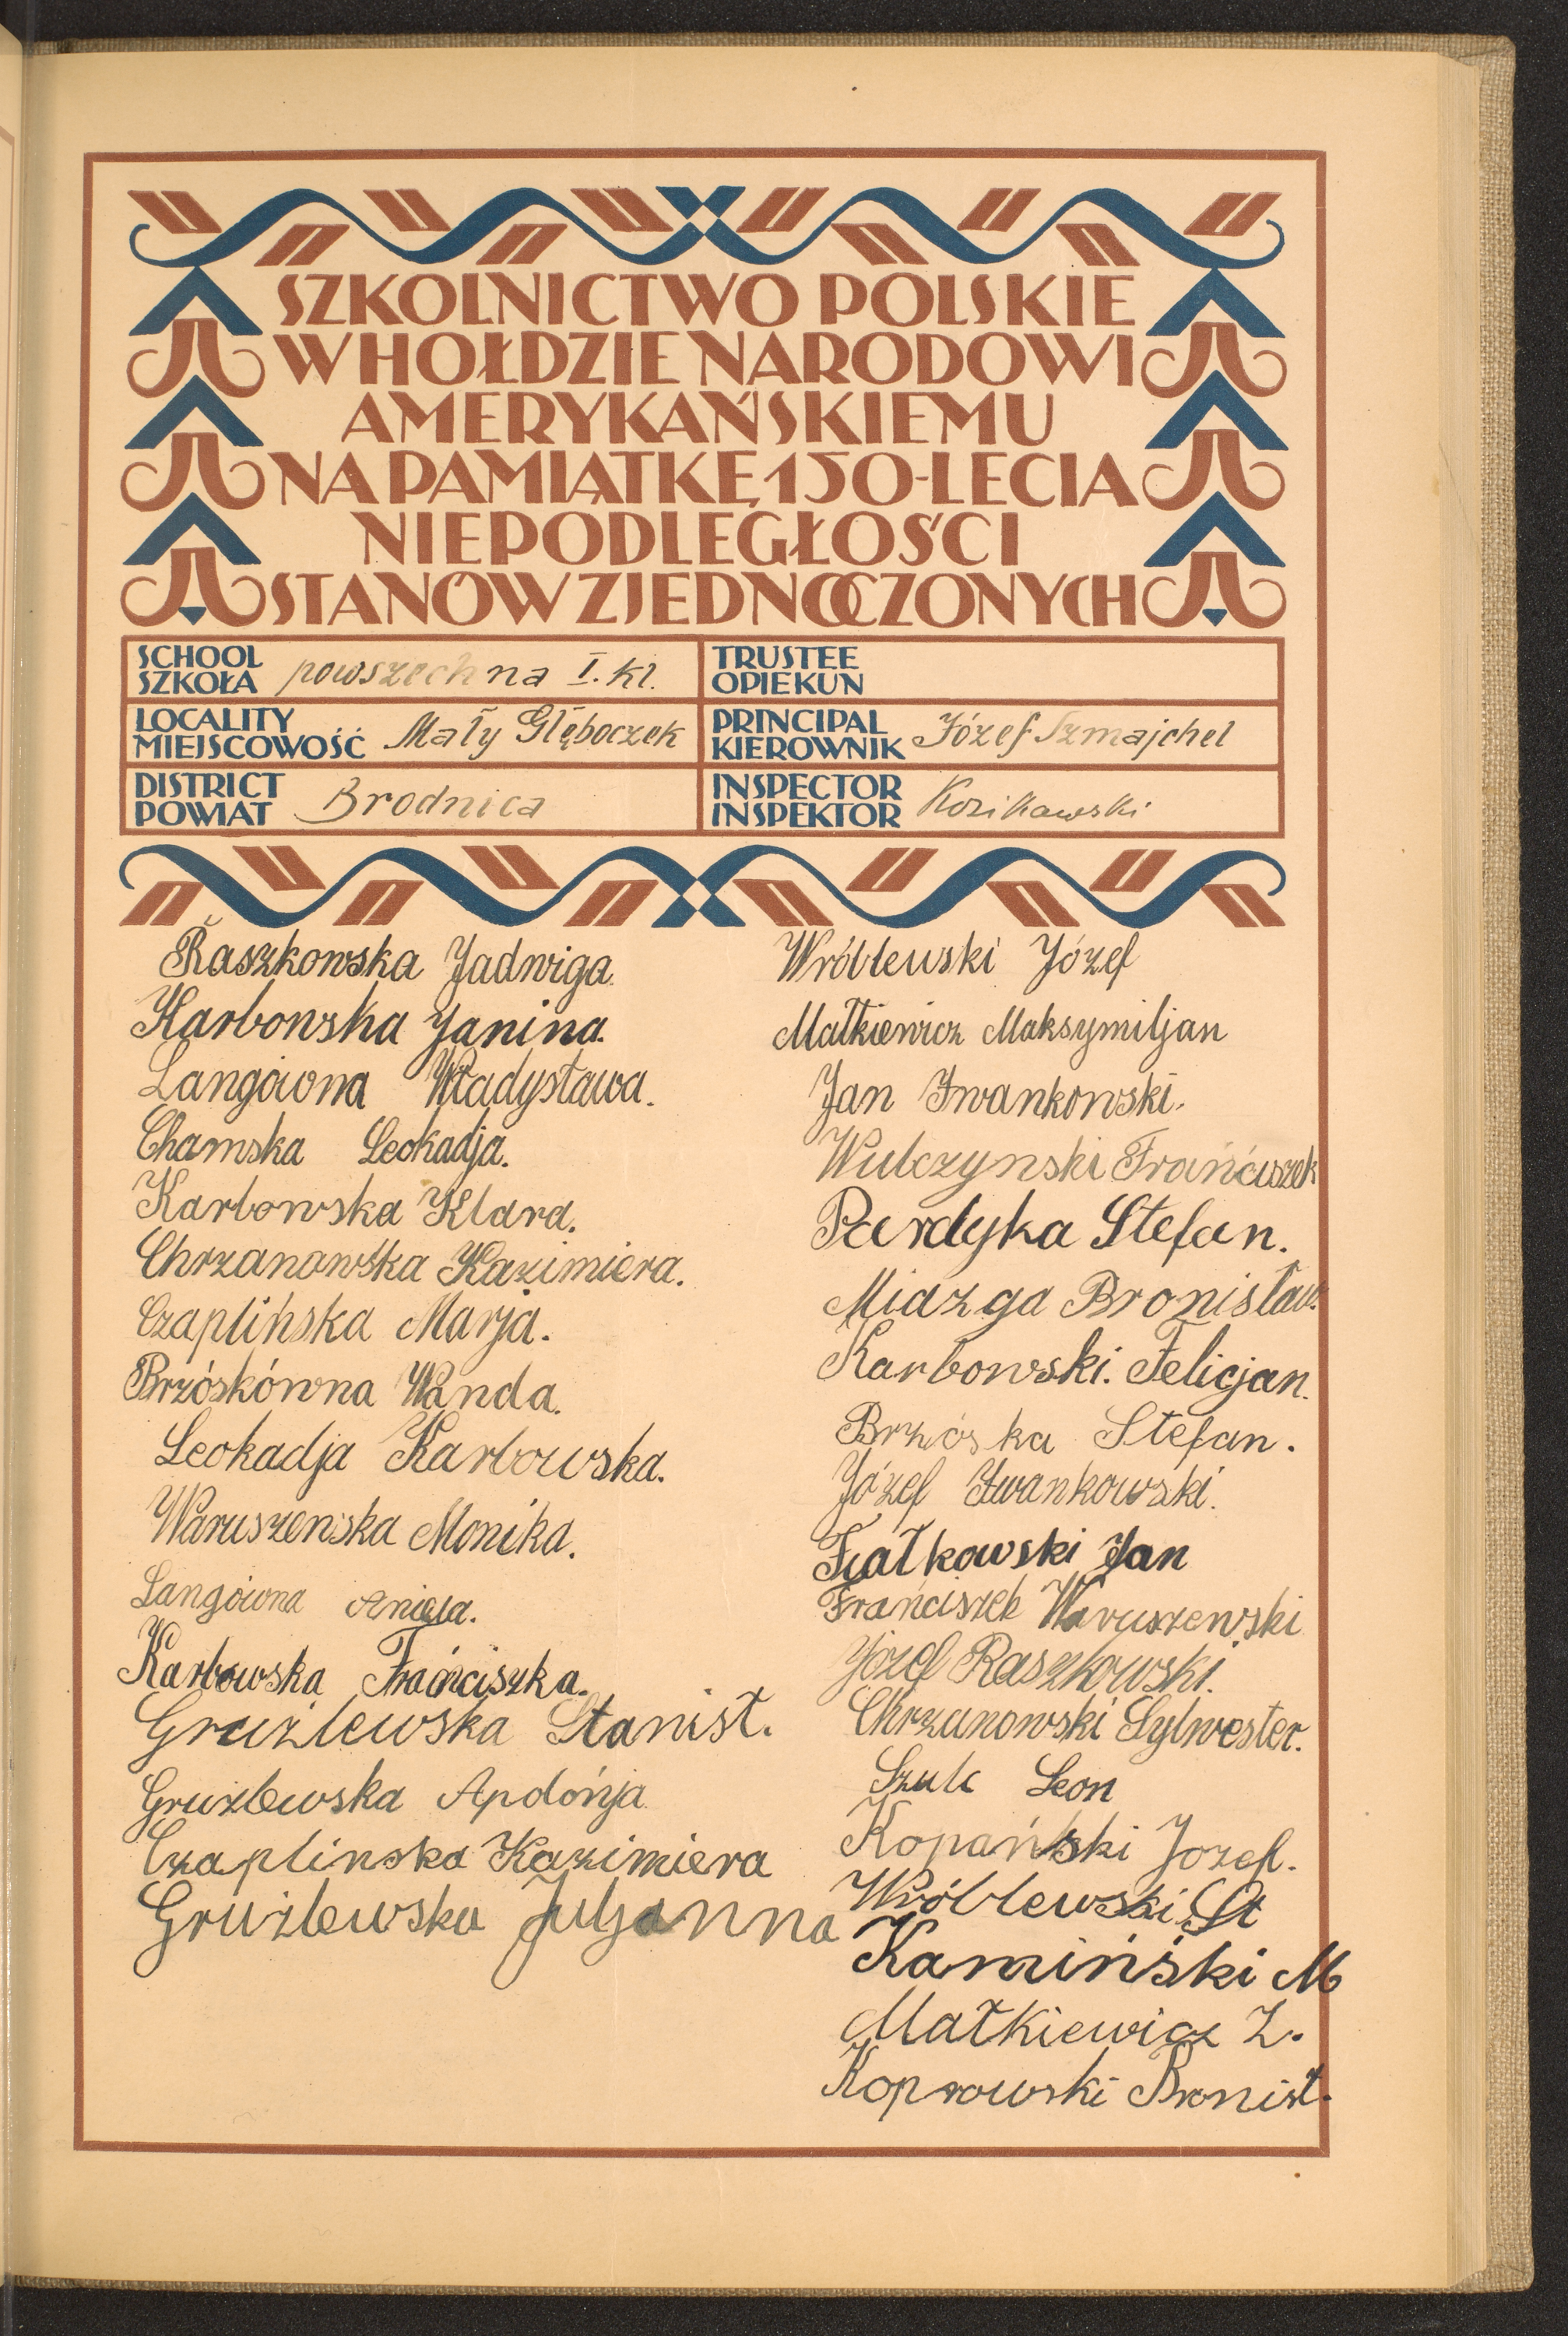 SZKOLNICTWO POLSKIE
W HOŁDZIE NARODOWI
AMERYKAŃSKIEMU
NA PAMIĄTKĘ 150-LECIA
NIEPODLEGŁOŚCI
STANÓW ZJEDNOCZONYCH
SCHOOL
SZKOŁA powszechna I. kl.
TRUSTEE
OPIEKUN
LOCALITY
MIEJSCOWOŚĆ Mały Głęboczek
PRINCIPAL
KIEROWNIK Józef Szmajchel
DISTRICT
POWIAT Brodnica
INSPECTOR
INSPEKTOR Kozikowski
Raszkowska Jadwiga.
Karbowska Janina.
Langówna Władysława.
Chamska Leokadja.
Karbowska Klara.
Chrzanowska Kazimiera.
Czaplińska Marja.
Brzóskówna Wanda.
Leokadja Karbowska.
Waruszewska Monika.
Langówna Aniela.
Karbowska Frańciszka.
Gruźlewska Stanisł.
Gruzlewska Apolońja
Czaplinska Kazimiera
Gruźlewska Juljanna
Wróblewski Józef
Małkiewicz Maksymiljan
Jan Iwankowski.
Wulczynski Frańciszek
Pardyka Stefan.
Miazga Bronisław.
Karbowski. Felicjan.
Brzóska Stefan.
Józef Iwankowski.
Fiałkowski Jan
Frańciszek Waruszewski
Józef Raszkowski.
Chrzanowski Sylwester.
Szulc Leon
Kopański Jozef.
Wróblewski St
Kamiński M
Małkiewicz Z.
Koprowski Bronisł.